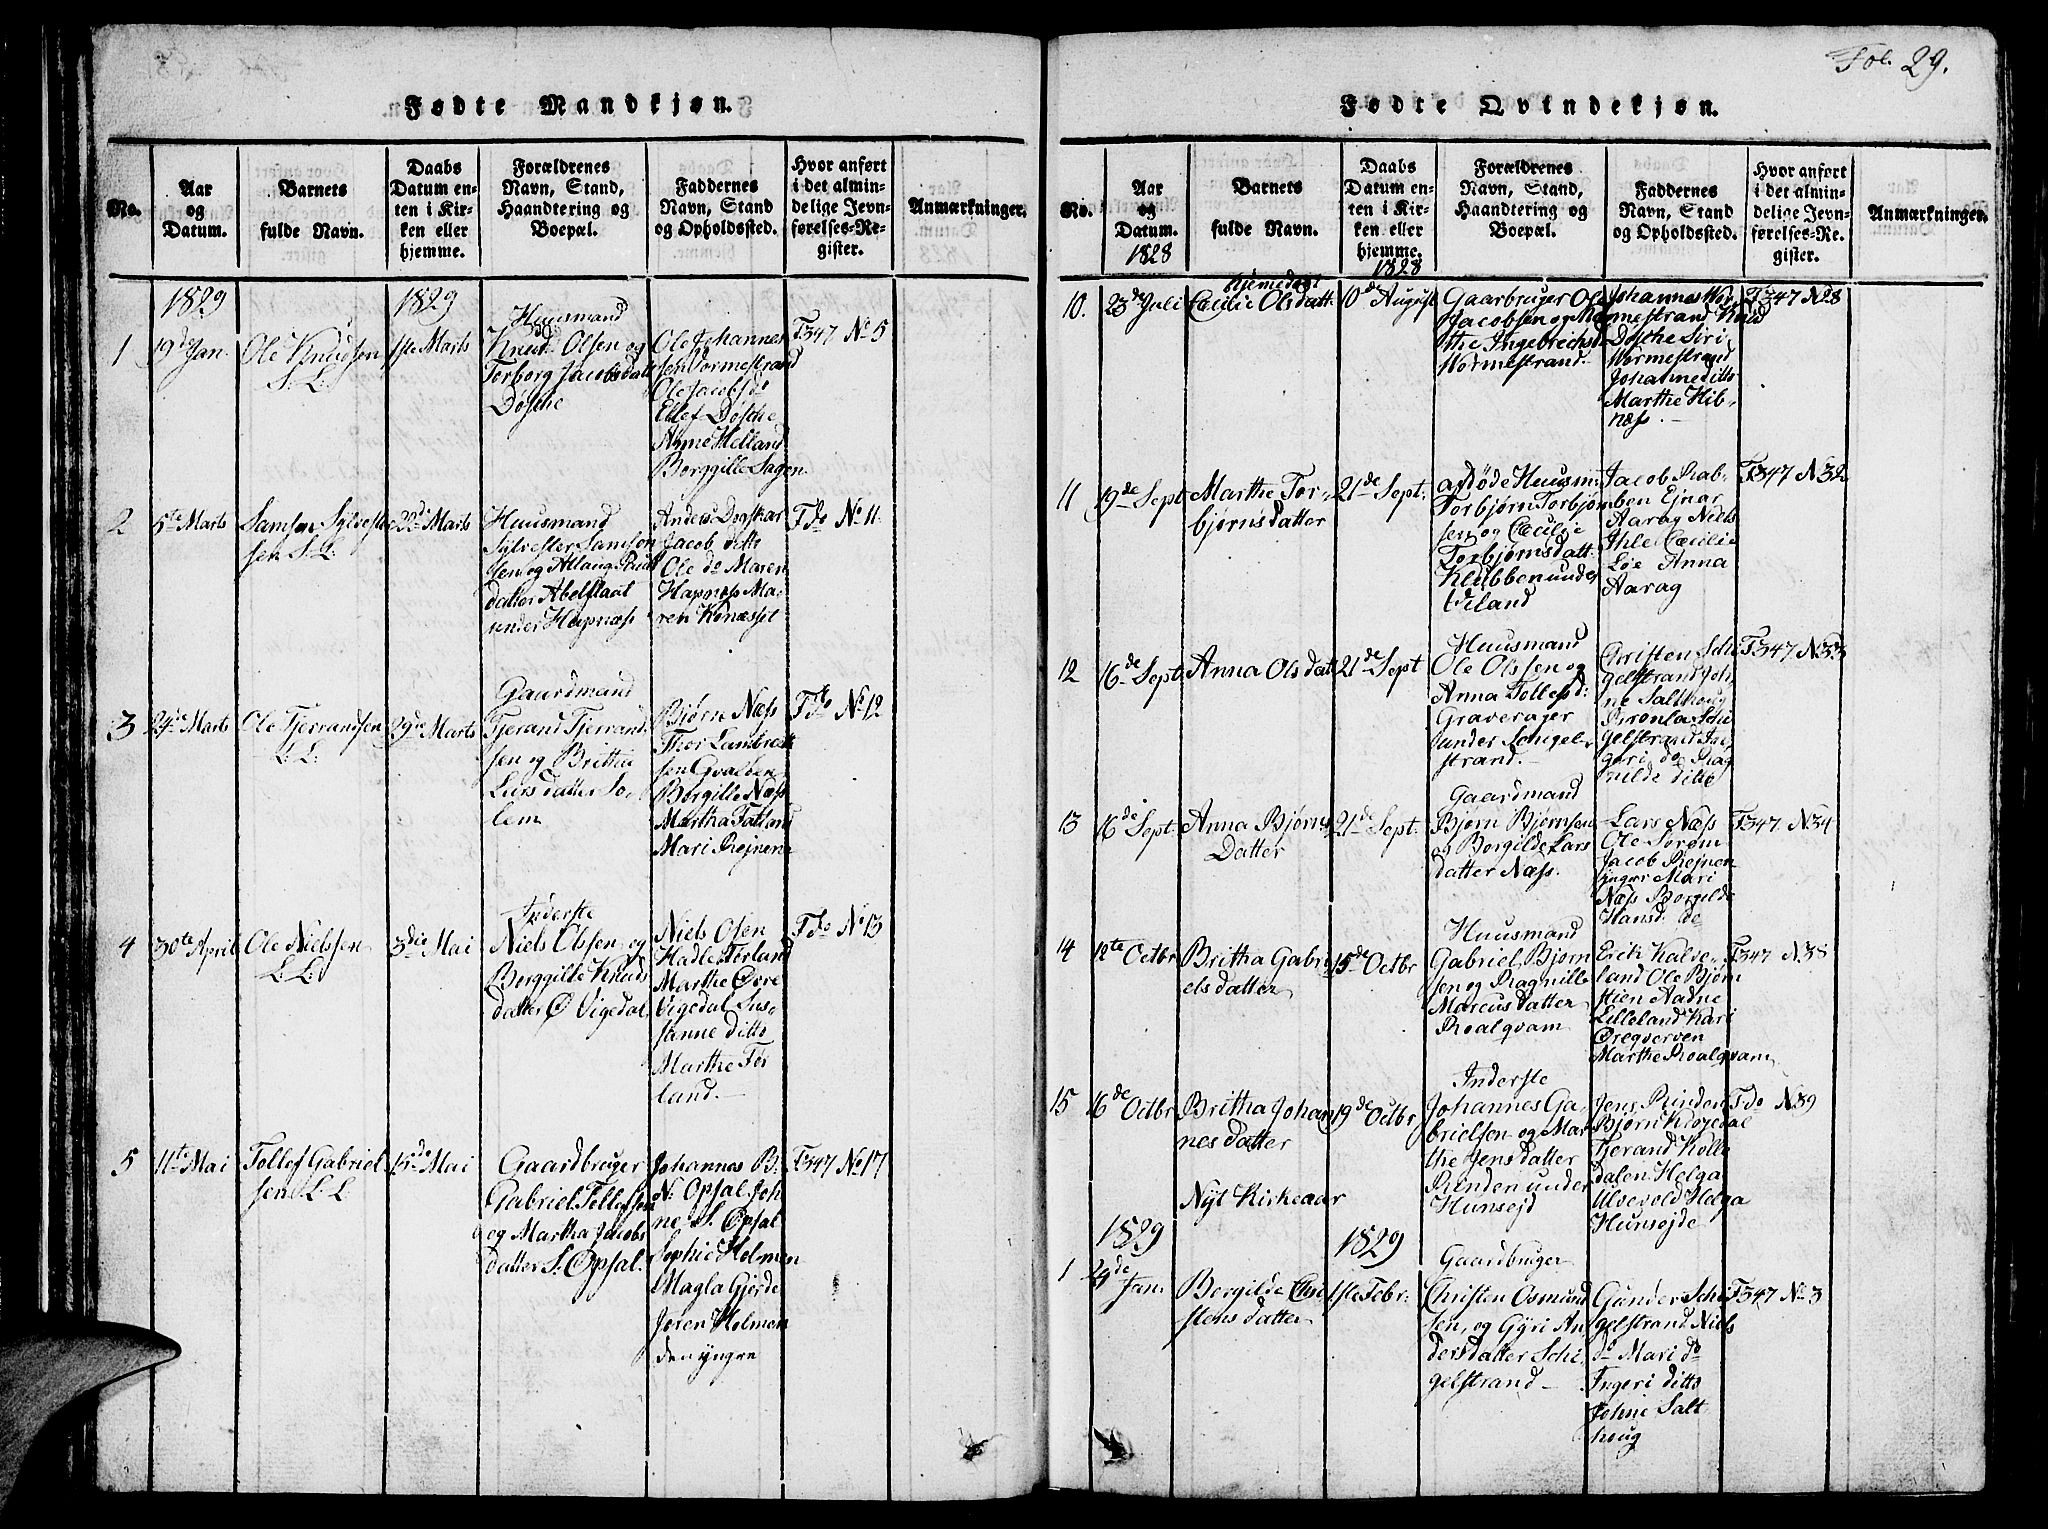 Fødte Mandkjøn.
No.
Aar
og
Datum.
Barnets
fulde Navn.
Daabs
Datum en-
ten i Kir-
ken eller
hjemme.
Forældrenes
Navn, Stand,
Haandtering og
Boepæl.
Faddernes
Navn, Stand
og Opholdssted.
Hvor anført
i det almin-
delige Jevn-
førelses-Re-
gister.
Anmærkninger.
1829
1829
1
19de Jan.
Ole Knudsen
S. L.
1ste Marts
Huusmand
Knud Olsen og
Torborg Jacobsdatt
Døsche
Ole Johannes
sen Vormestrand
Ole Jacobs do
Ellef Døsche
Anne Helland
Borggille Sagen
T347 No 5
2
5te Marts
Samson Sylvester
sen S. L:
22de Marts
Huusmand
Sylvester Samson
sen og Atlaug Knuds
datter Abelstaat
under Hapnæss
Anders Dragskar
Jacob ditto
Ole do Maren
Hapnæss Ma-
ren Kønæsset
T do No 11.
3
29de Marts
Ole Tjerrandsen
L: L:
29de Marts
Gaardmand
Tjerand Tjerrand
sen og Britha
Larsdatter So-
lem
Bjørn Næss
Thor Lambrecht
sen Qvalben
Borgille Næss
Martha Tatland
Mari Røjnene
T do No 12
4
30te April
Ole Nielssen
L: L:
3die Mai
Inderste
Niels Olssen og
Borggille Knuds
datter Ø Vigedal
Niels Olsen
Hadle Førland
Marthe Øvre
Vigedal Sus-
sanne ditto
Marthe Før
land.
T do No 13
5
11te Mai
Tollef Gabriel
sen S. L.
15de Mai
Gaardbruger
Gabriel Tollefsen
og Martha Jacobs
datter S. Opsal.
Johannes B.
N: Opsal Joh
ne S. Opsal
Sophie Holmen
Magla Gjerde
Joren Holmen
den yngre
T347 No 17
Fol. 29.
Fødte Qvindekjøn.
No.
Aar
og
Datum.
1828
Barnets
fulde Navn.
Daabs
Datum en-
ten i Kir-
ken eller
hjemme.
1828
Forældrenes
Navn, Stand,
Haandtering og
Boepæl.
Faddernes
Navn, Stand
og Opholdssted.
Hvor anført
i det almin-
delige Jevn-
førelses-Re-
gister.
Anmærkninger.
10.
23de Juli
hjemedøbt
Cæcilie Olsdatt.
10de August
Gaarbruger Ole
Jacobsen og Mar
the Ingebrechtsd.
Wormestrand.
Johannes Wor
mestrand Knud
Døsche Siri
Wormestrand
Johanne ditto
Marthe Hib-
næss.
T347 N28
11
19de Sept.
Marthe Tor-
bjørnsdatter
21de Sept.
afdøde Huusm:
Torbjørn Torbjørn
sen og Cæcilie
Torbjørnsdatt.
Klubben under
Vieland
Jacob Rab-
ben Ejnar
Aarag Niels
Ihle Cæcilie
Løe Anna
Aarag
T347 N32
12
16de Sept.
Anna Olsdatt.
21de Sept
Huusmand
Ole Olssen og
Anna Tollefsd:
Graverager
under Schigel-
strand.
Christen Schi
gelstrand Joh-
ne Salthoug
Pironla Schi
gelstrand In-
geri do Rag
nilde ditto
T347 N33
13
16de Sept.
Anna Bjørns
Datter
21de Sept.
Gaardmand
Bjørn Bjørnsen
og Borgilde Lars
datter Næss.
Lars Næss
Ole Sørøm
Jacob Rejnen
yngere Mari
Næss Borgilde
Hansd. do
T347. N34
14
12te Octbr
Britha Gabri-
elsdatter
15de Octbr
Huusmand
Gabriel Bjørn
sen og Ragnille
Marcusdatter
Roalqvam
Erik Kalve-
land Ole Bjørn
stien Aadne
Lilleland Kari
Øregverven
Marthe Roalqvam
T347 N38
15
16de Octbr
Britha Johan
nesdatter
19de Octbr
Inderste
Johannes Ga-
brielsen og Mar
the Jensdatter
Rinden under
Hunsejd
Jens Rinden
Bjørn Krogedal
Tjerand Kolle
dalen Helga
Ulvevold Helga
Hunsøjde
T do N39
Nyt Kirkeaar
1829
1829
1
29de
Jan.
Borgilde Chri
stensdatter
1ste Febr:
Gaardbruger
Christen Osmund
sen, og Gÿri An
dersdatter Schi
gelstrand
Gunder Schi
gelstrand Niels
do Mari do
Ingeri ditto
Johne Salt
houg
T347 No 3